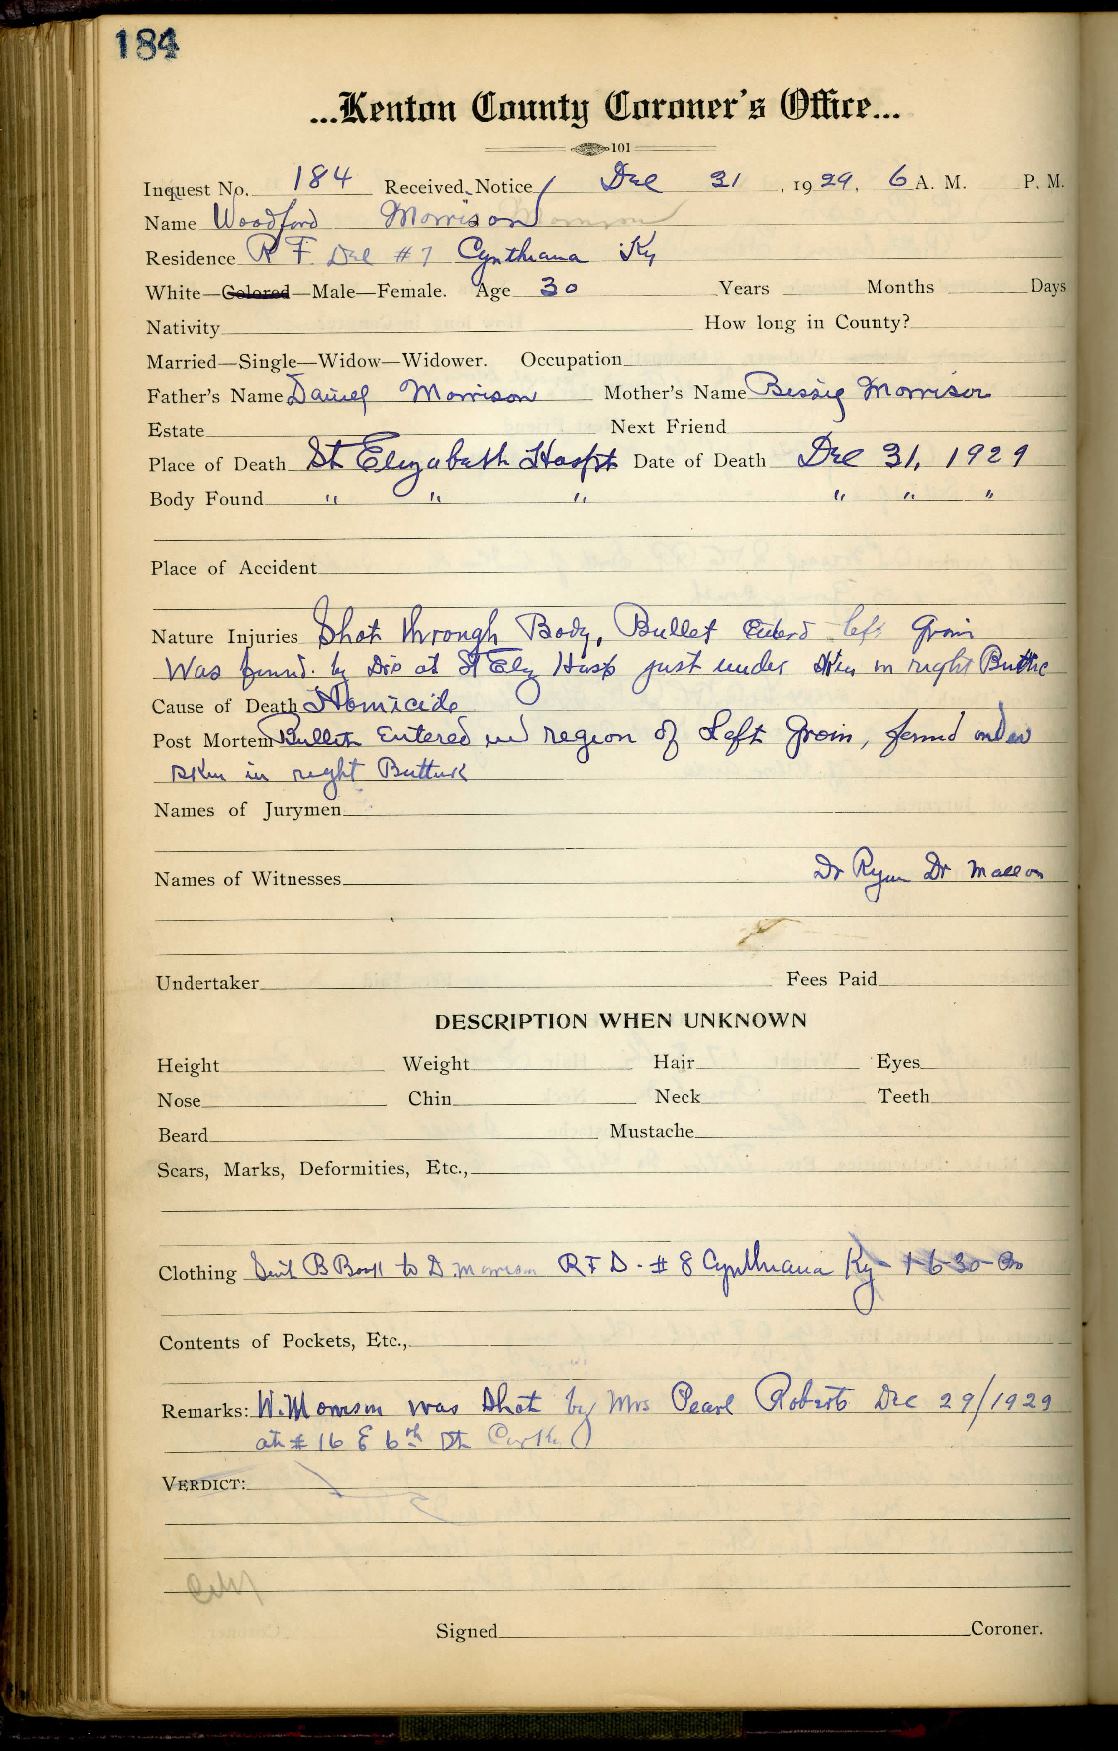 184
...Kenton County Coroner's Office...
101
Inquest No. 184 Received Notice Dec 31, 1929, 6 A. M. P. M.
Name Woodford Morrison
Residence R F Del #7 Cynthiana Ky
White—Colored—Male—Female. Age 30 Years Months Days
Nativity How long in County?
Married—Single—Widow—Widower. Occupation
Father's Name Daniel Morrison Mother's Name Bessie Morrison
Estate Next Friend
Place of Death St Elizabeth Hospt Date of Death Dec 31, 1929
Body Found " " " " " "
Place of Accident
Nature Injuries Shot through Body, Bullet Enterd left Groin
Was found by Drs at St Eliz Hosp just under skin in right
Cause of Death Homicide
Post Mortem Bullet Entered in region of Left Groin, found under
skin in right Buttuck
Names of Jurymen
Names of Witnesses Dr Ryan Dr
Undertaker Fees Paid
DESCRIPTION WHEN UNKNOWN
Height Weight Hair Eyes
Nose Chin Neck Teeth
Beard Mustache
Scars, Marks, Deformities, Etc.,
Clothing Sent B Book to D. Morrison R F D - # 8 Cynthiana Ky - 1-6-30
Contents of Pockets, Etc.,
Remarks: W. Morrison was Shot by Mrs Pearl Roberts Dec 29/1929
at # 16 E 6th St
VERDICT:
Signed Coroner.